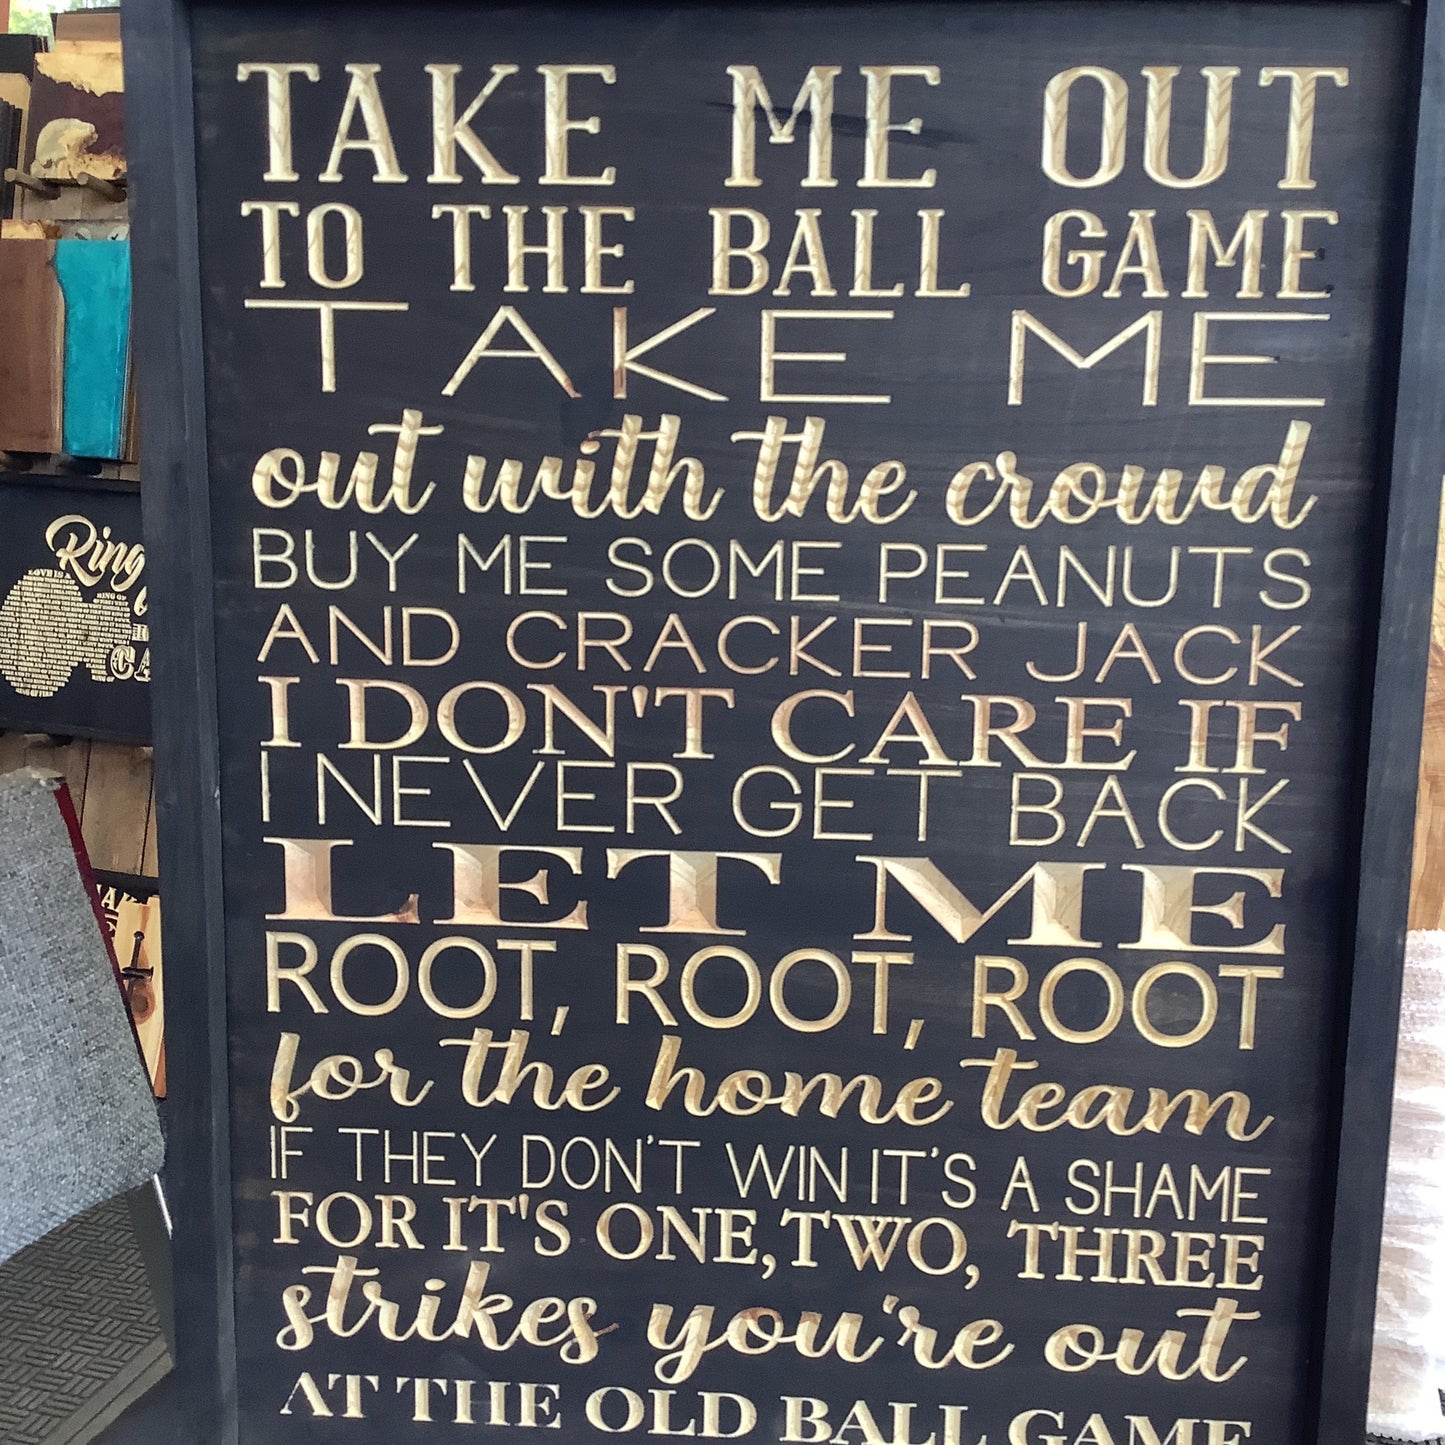 TAKE ME OUT
TO THE BALL GAME
TAKE ME
out with the crowd
BUY ME SOME PEANUTS
AND CRACKER JACK
I DON'T CARE IF
I NEVER GET BACK
LET ME
ROOT, ROOT, ROOT
for the home team
IF THEY DON'T WIN IT'S A SHAME
FOR IT'S ONE, TWO, THREE
strikes you're out
AT THE OLD BALL GAME
Ring
LOVE IS A